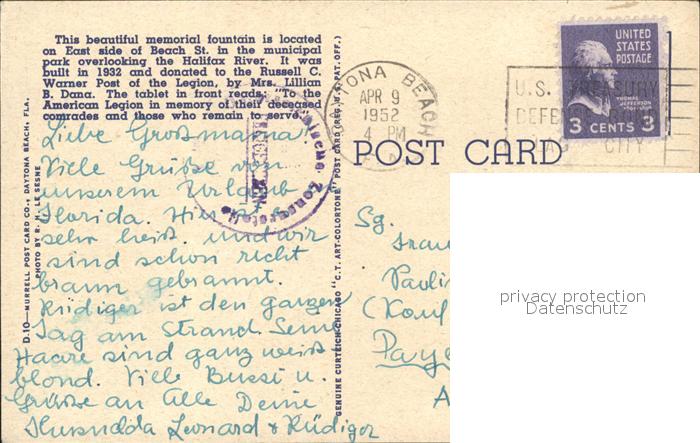 This beautiful memorial fountain is located
on East side of Beach St. in the municipal
park overlooking the Halifax River. It was
built in 1932 and donated to the Russell C.
Warner Post of the Legion, by Mrs. Lillian
B. Dana. The tablet in front reads: "To the
American Legion in memory of their deceased
comrades and those who remain to serve."
Liebe Grossmama!
Viele Grüsse von
unserem Urlaub
Florida. Hier ist
sehr heiss. und wir
sind schon recht
braun gebrannt.
Rüdiger ist den ganzen
Tag am Strand. Seine
Haare sind ganz weiss
blond. Viele Bussi u.
Grüsse an Alle Deine
Leonard & Rüdiger
D.10—MURRELL POST CARD CO., DAYTONA BEACH, FLA.
PHOTO BY R. H. LE SESNE
GENUINE CURTEICH-CHICAGO "C.T. ART-COLORTONE" POST CARD (REG. U.S. PAT. OFF.)
TONA BEACH
APR 9
1952
4 PM
U.S. TREASURY
DEFE
CITY
UNITED
STATES
POSTAGE
THOMAS
JEFFERSON
3 CENTS 3
POST CARD
Zensurstelle
Sg.
Frau
Pauli
(Kauf
Paye
A
privacy protection
Datenschutz